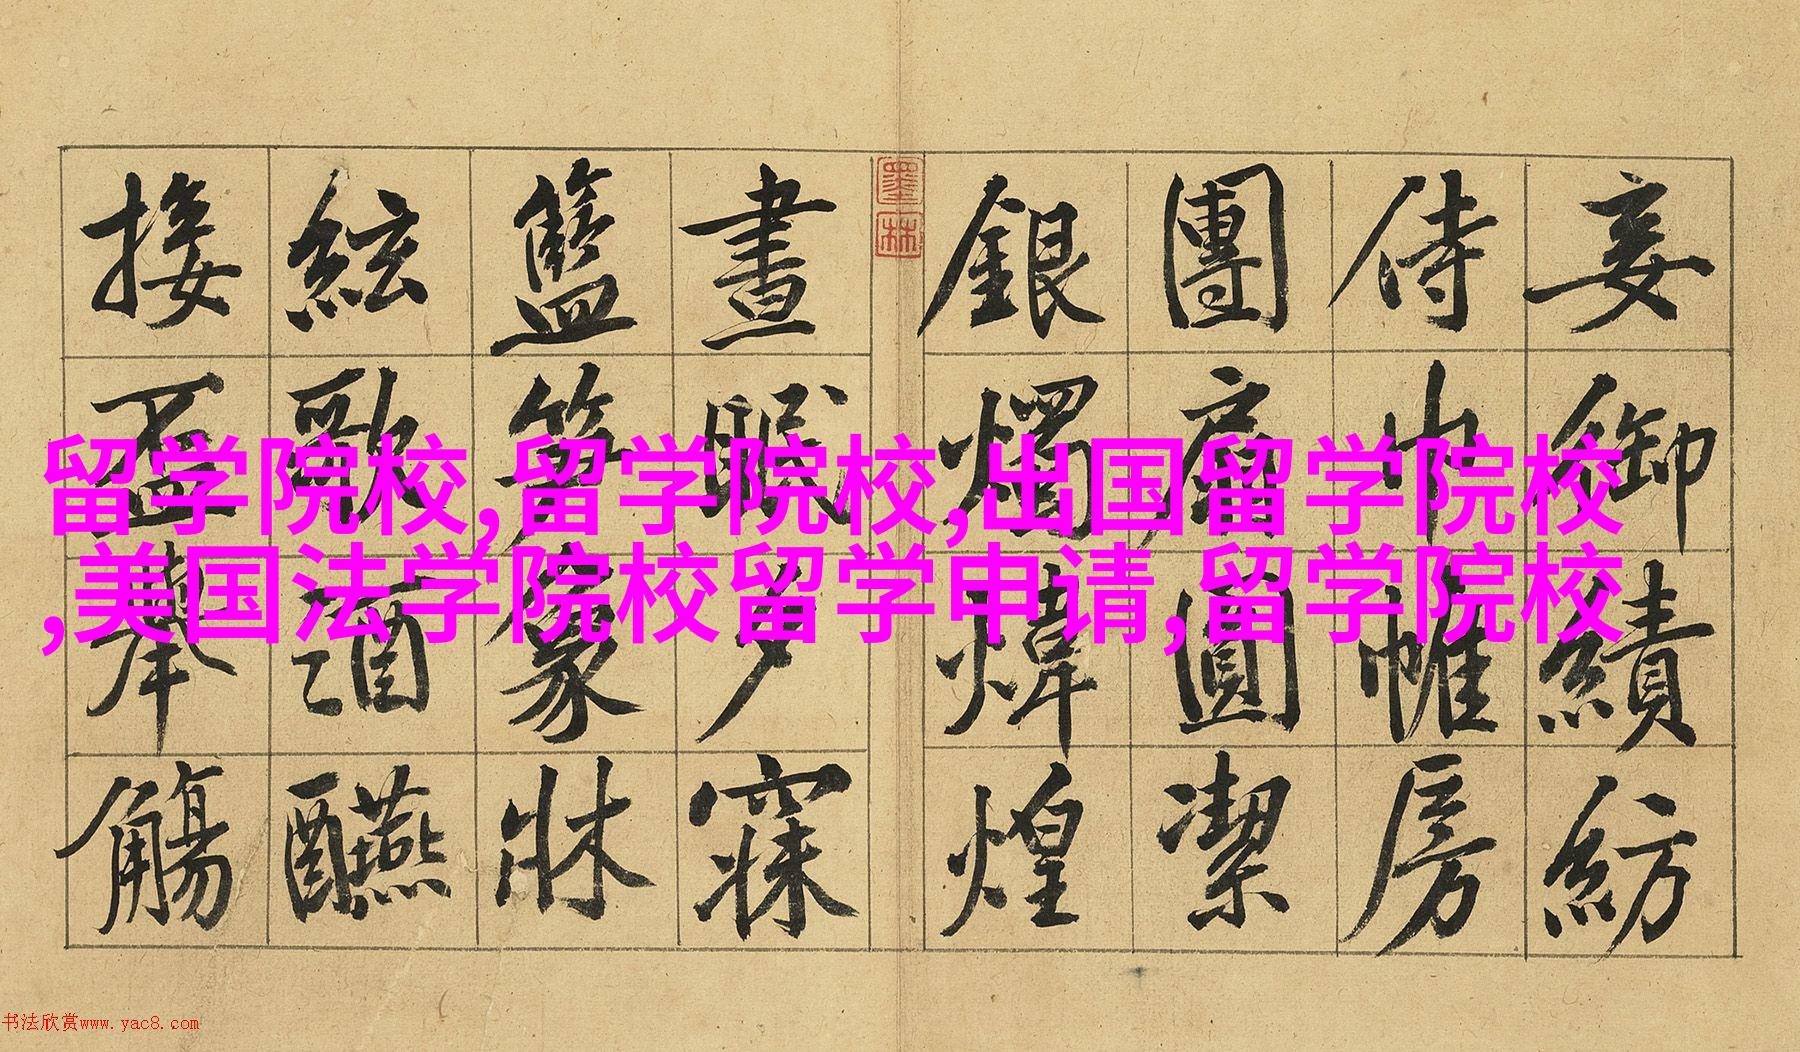 妾御績紡
侍巾帷房
團扇圓潔
銀燭煒煌
墨林
晝眠夕寐
籃笋象牀
絃歌酒醼
接盃舉觴
留学院校,留学院校,出国留学院校
,美国法学院校留学申请,留学院校
书法欣赏www.yac8.com